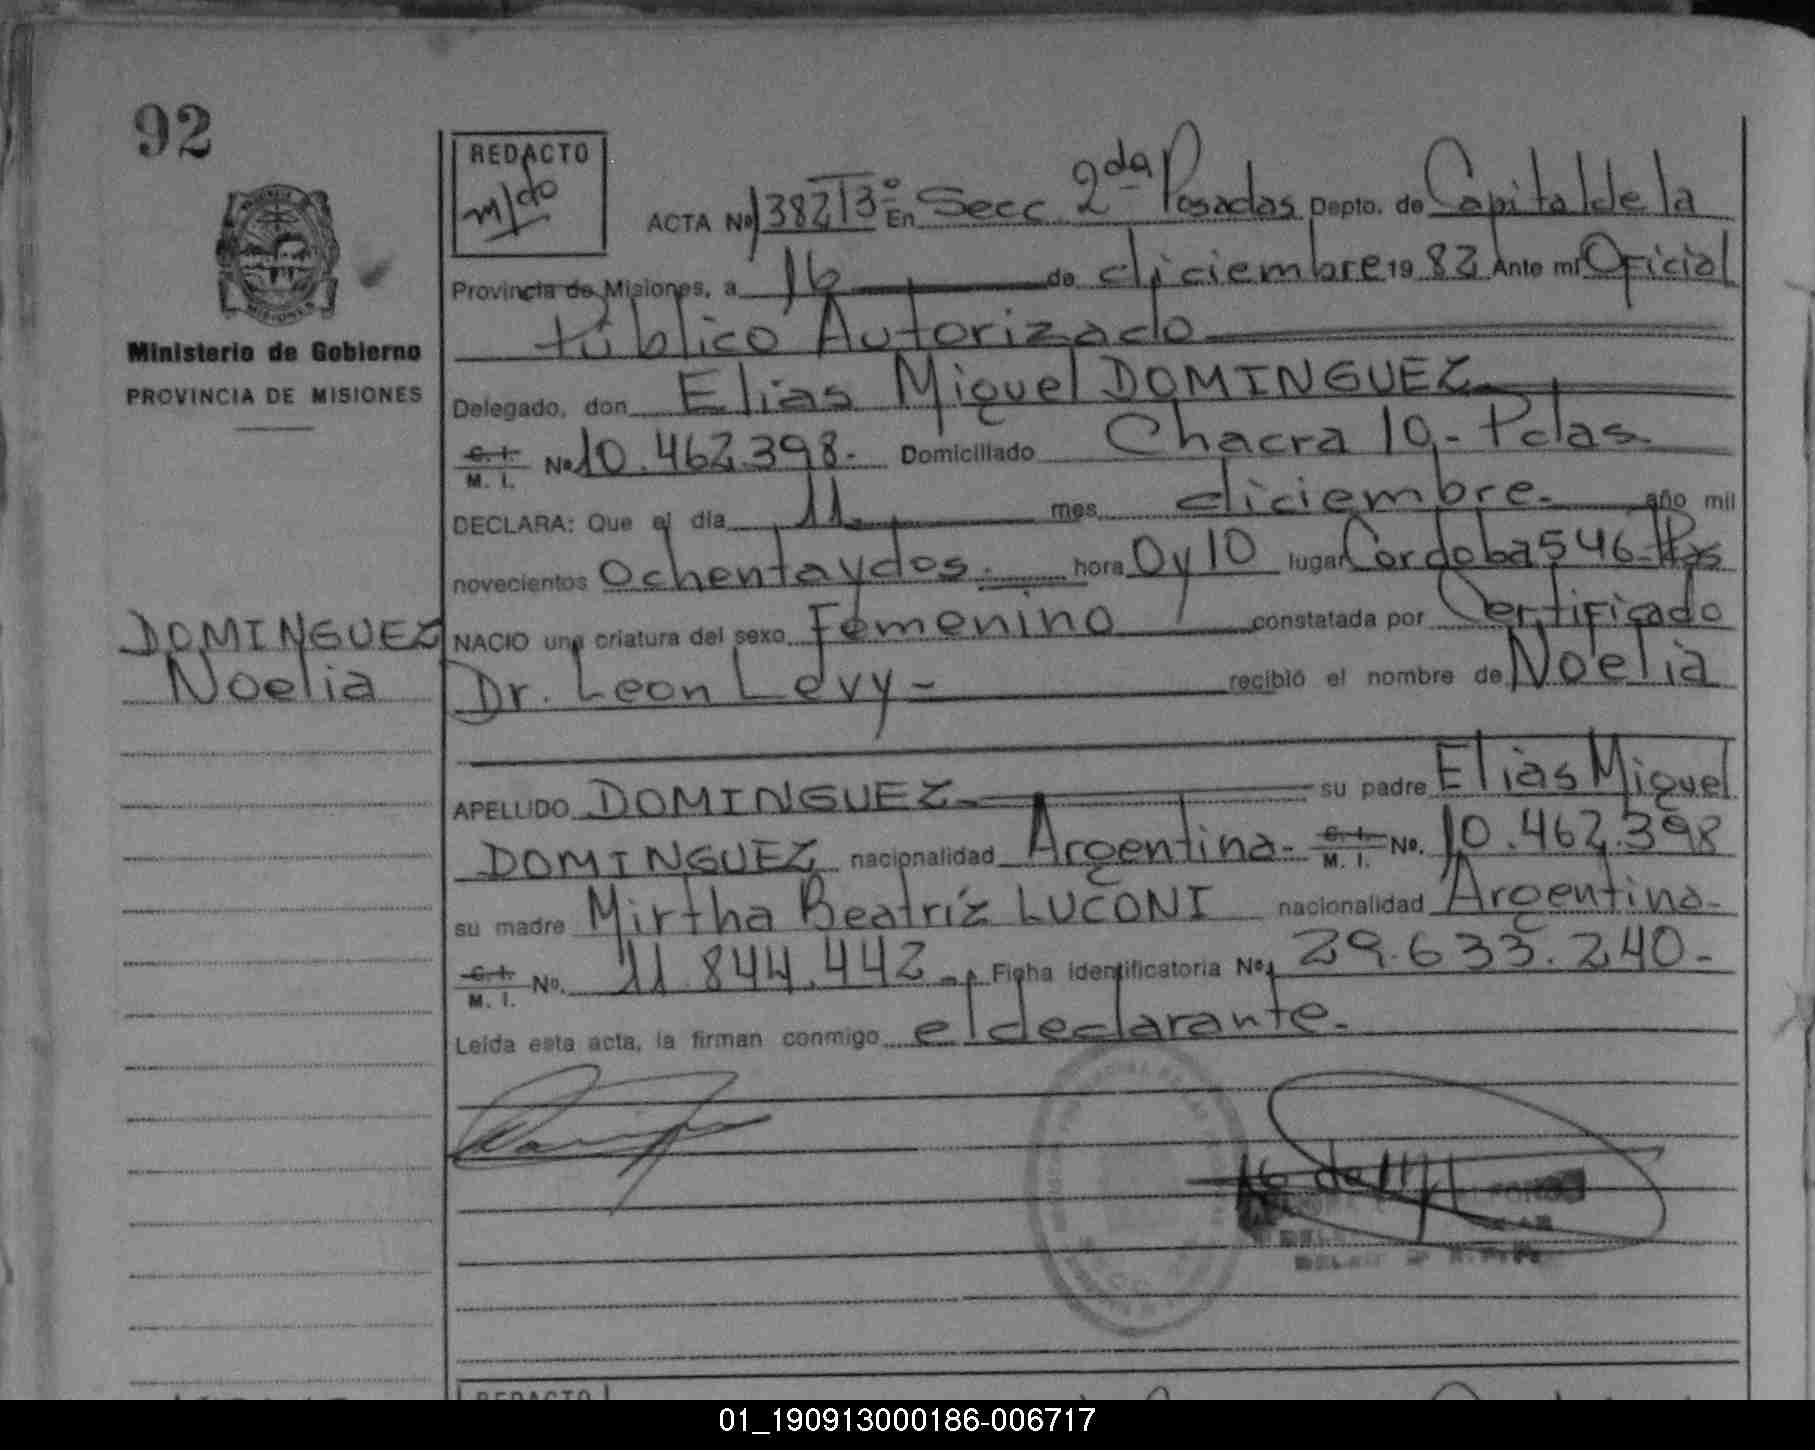 92
REDACTO
ACTA Nº 1382T3º En Secc 2da Posadas Depto. de Capital de la
Provincia de Misiones, a 16 de diciembre 19 82 Ante mi Oficial
Público Autorizado
Ministerio de Gobierno
PROVINCIA DE MISIONES
Delegado, don Elias Miguel DOMINGUEZ
C. I. M. I. Nº 10.462.398.- Domiciliado Chacra 10.- Pdas.
DECLARA: Que el día 11 mes diciembre.- año mil
novecientos Ochentaydos.- hora 0y10 lugar Cordoba 546-Pdas
DOMINGUEZ
Noelia
NACIO una criatura del sexo Femenino constatada por Certificado
Dr. Leon Levy- recibió el nombre de Noelia
APELLIDO DOMINGUEZ.- su padre Elias Miguel
DOMINGUEZ nacionalidad Argentina.- C. I. M. I. Nº. 10.462.398
su madre Mirtha Beatríz LUCONI nacionalidad Argentina-
C. I. M. I. Nº. 11.844.442.- Ficha identificatoria Nº. 29.633.240.-
Leída esta acta, la firman conmigo el declarante.-
REDACTO
01_190913000186-006717